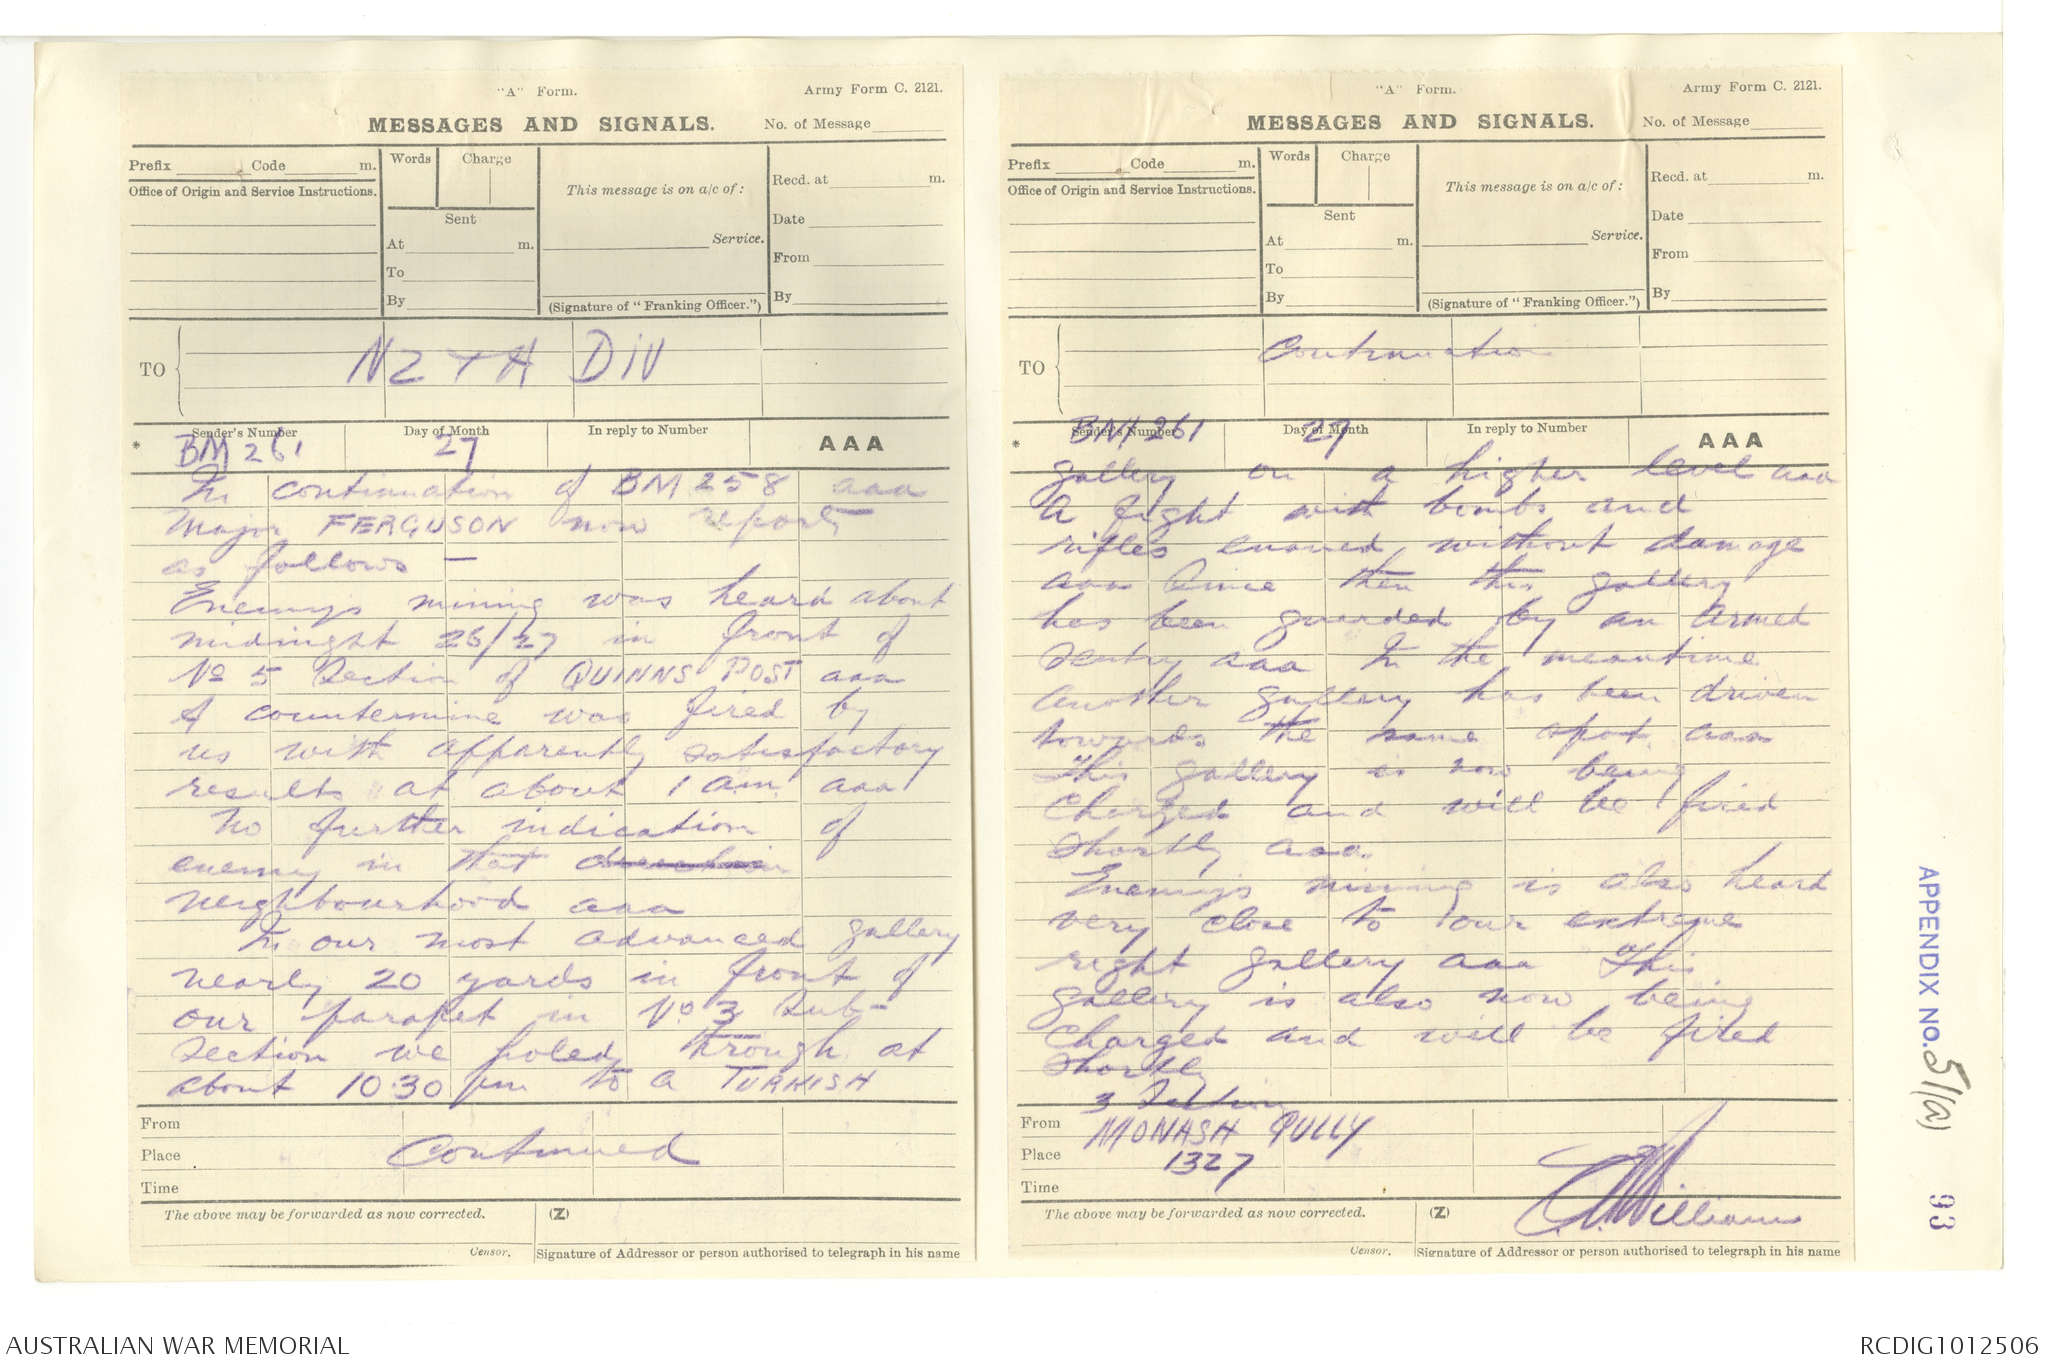 "A" Form. Army Form C. 2121.
MESSAGES AND SIGNALS. No. of Message
Prefix Code m. Words Charge This message is on a/c of: Recd. at m.
Office of Origin and Service Instructions. Sent Date
At m. Service. From
To
By (Signature of "Franking Officer.") By
TO N Z & A DIV
Sender's Number Day of Month In reply to Number AAA
* BM 261 27
In continuation of BM 258 aaa
Major FERGUSON now reports
as follows —
Enemy's mining was heard about
midnight 26/27 in front of
No 5 Section of QUINNS POST aaa
A countermine was fired by
us with apparently satisfactory
results at about 1 am aaa
No further indication of
enemy in that direction
neighbourhood aaa
In our most advanced gallery
nearly 20 yards in front of
our parapet in No 3 Sub-
section we holed through at
about 10.30 pm to a TURKISH
From
Place Continued
Time
The above may be forwarded as now corrected. (Z)
Censor. Signature of Addressor or person authorised to telegraph in his name
"A" Form. Army Form C. 2121.
MESSAGES AND SIGNALS. No. of Message
Prefix Code m. Words Charge This message is on a/c of: Recd. at m.
Office of Origin and Service Instructions. Sent Date
At m. Service. From
To
By (Signature of "Franking Officer.") By
TO Continuation
Sender's Number Day of Month In reply to Number AAA
* BM 261 27
gallery on a higher level aaa
A fight with bombs and
rifles ensued without damage
aaa Since then this gallery
has been guarded by an armed
sentry aaa In the meantime
another gallery has been driven
towards the same spot aaa
This gallery is now being
charged and will be fired
shortly aaa.
Enemy's mining is also heard
very close to our extreme
right gallery aaa This
gallery is also now being
charged and will be fired
shortly
3 Section
From MONASH GULLY
Place 1327
Time
The above may be forwarded as now corrected. (Z) Williams
Censor. Signature of Addressor or person authorised to telegraph in his name
APPENDIX NO. 5/(a) 93
AUSTRALIAN WAR MEMORIAL RCDIG1012506